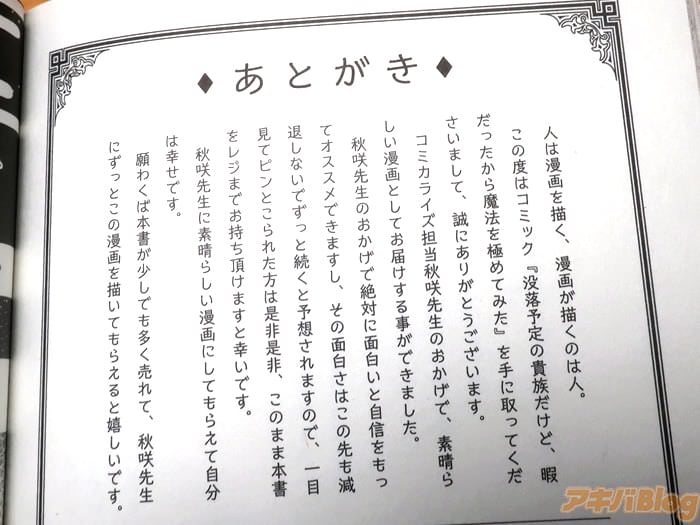 ◆あとがき◆
人は漫画を描く、漫画が描くのは人。
この度はコミック『没落予定の貴族だけど、暇
だったから魔法を極めてみた』を手に取ってくだ
さいまして、誠にありがとうございます。
コミカライズ担当秋咲先生のおかげで、素晴ら
しい漫画としてお届けする事ができました。
秋咲先生のおかげで絶対に面白いと自信をもっ
てオススメできますし、その面白さはこの先も減
退しないでずっと続くと予想されますので、一目
見てピンとこられた方は是非是非、このまま本書
をレジまでお持ち頂けますと幸いです。
秋咲先生に素晴らしい漫画にしてもらえて自分
は幸せです。
願わくば本書が少しでも多く売れて、秋咲先生
にずっとこの漫画を描いてもらえると嬉しいです。
アキバBlog